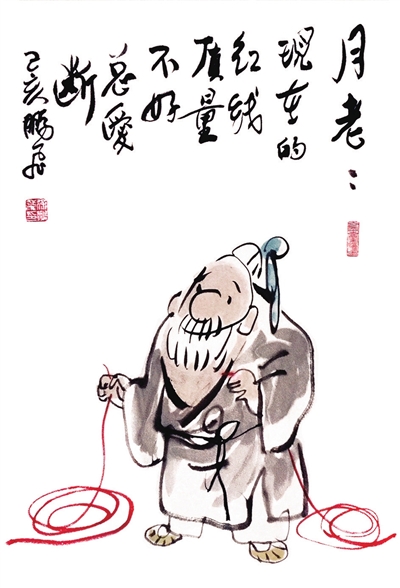 月老：
现在的
红线
质量
不好
总爱
断
己亥鹏飞